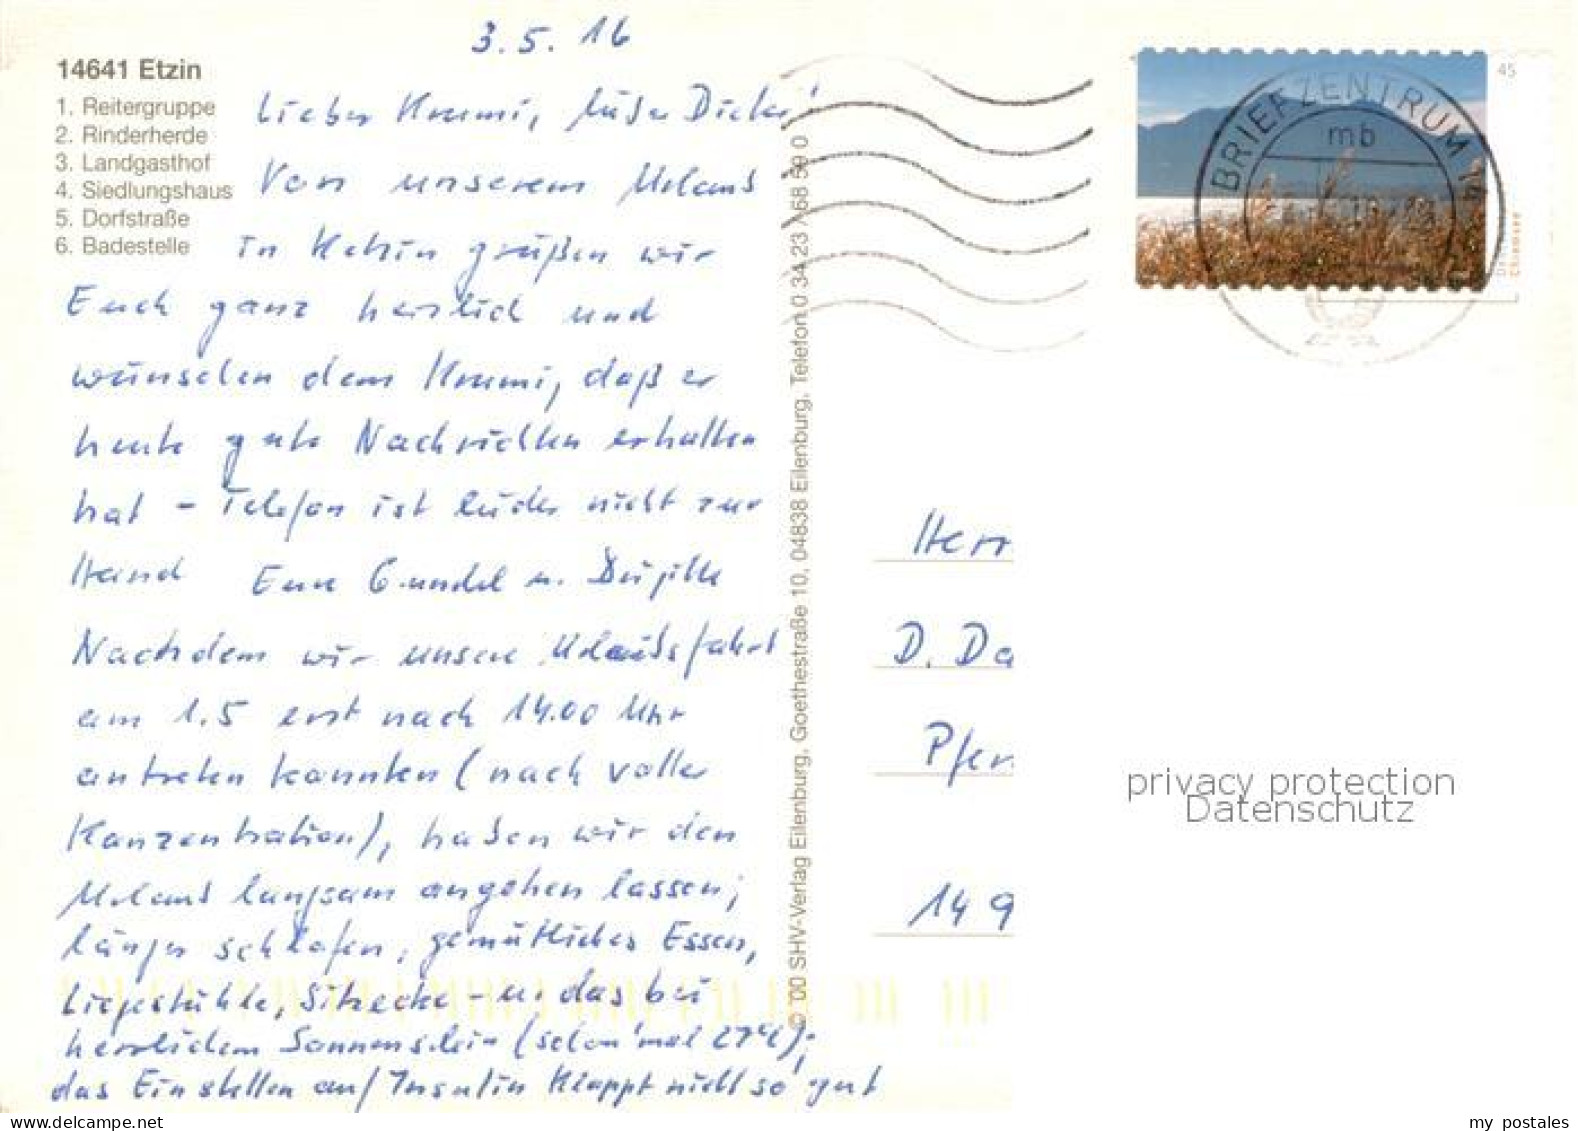 3.5.16
14641 Etzin
1. Reitergruppe
2. Rinderherde
3. Landgasthof
4. Siedlungshaus
5. Dorfstraße
6. Badestelle
Lieber Krumi, lieber Dicker!
Von unserem Urlaub
in Ketzin grüßen wir
Euch ganz herzlich und
wünschen dem Krumi, daß er
heute gute Nachrichten erhalten
hat - Telefon ist leider nicht zur
Hand Eure Gundel u. Brigitte
Nachdem wir unsere Urlaubsfahrt
am 1.5 erst nach 14.00 Uhr
antreten konnten (nach voller
Konzentration), haben wir den
Urlaub langsam angehen lassen;
länger schlafen, gemütliches Essen,
Liegestühle, Sitzecke - u. das bei
herrlichem Sonnenschein (schon 'mal 27°C);
das Einstellen auf Insulin klappt nicht so gut
© '00 SHV-Verlag Eilenburg, Goethestraße 10, 04838 Eilenburg, Telefon 0 34 23 / 68 59 0
45
BRIEFZENTRUM 14
mb
Chiemsee
Herr
D. Da
Pfer
14 9
privacy protection
Datenschutz
my postales